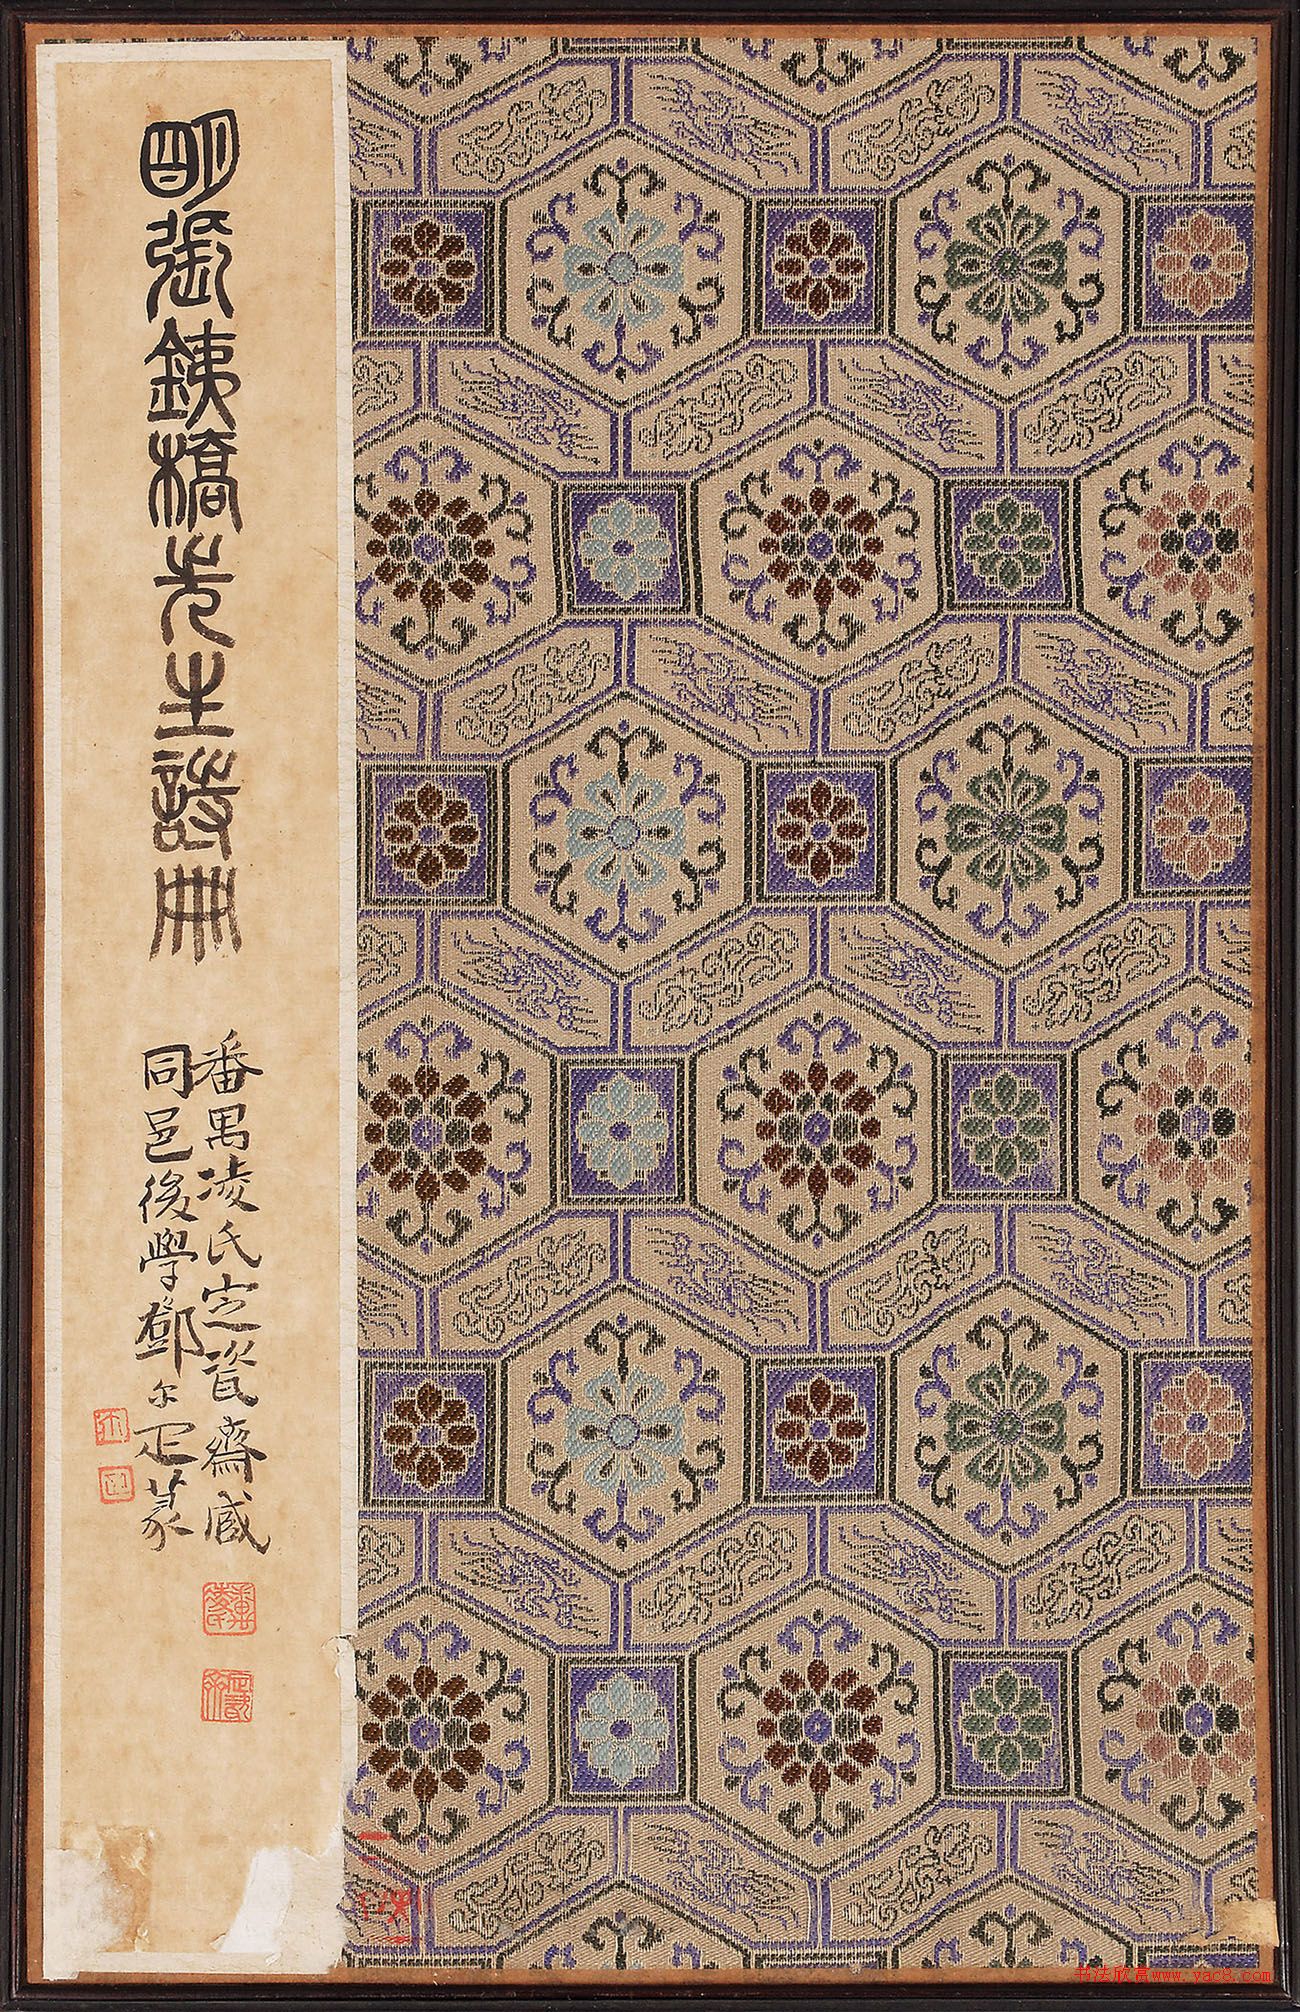 明張鐵橋先生詩冊
番禺凌氏定瓷齋藏
同邑後學鄧尔疋篆
书法欣赏www.yac8.com